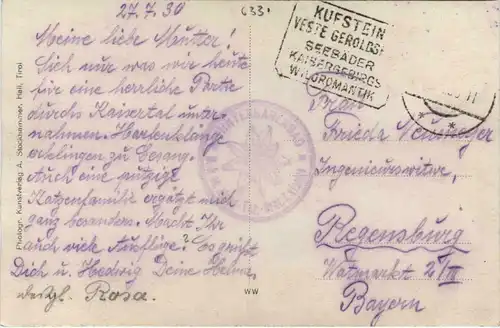 27.7.30
633
Meine liebe Mutter!
Sieh nur was wir heute
für eine herrliche Partie
durchs Kaisertal unter-
nahmen. Harfenklänge
erklingen zu Gesang.
Auch eine putzige
Katzenfamilie ergötzt mich
ganz besonders. Macht Ihr
auch viel Ausflüge? Es grüßt
Dich u. Hedwig Deine
desgl. Rosa.
Photogr. Kunstverlag A. Stockhammer, Hall, Tirol
WW
KUFSTEIN
VESTE GEROLDS
SEEBÄDER
KAISERGEBIRGS
WILDROMANTIK
Frau
Frieda
Ingenieurswitwe,
Regensburg
Watmarkt 2/III
Bayern